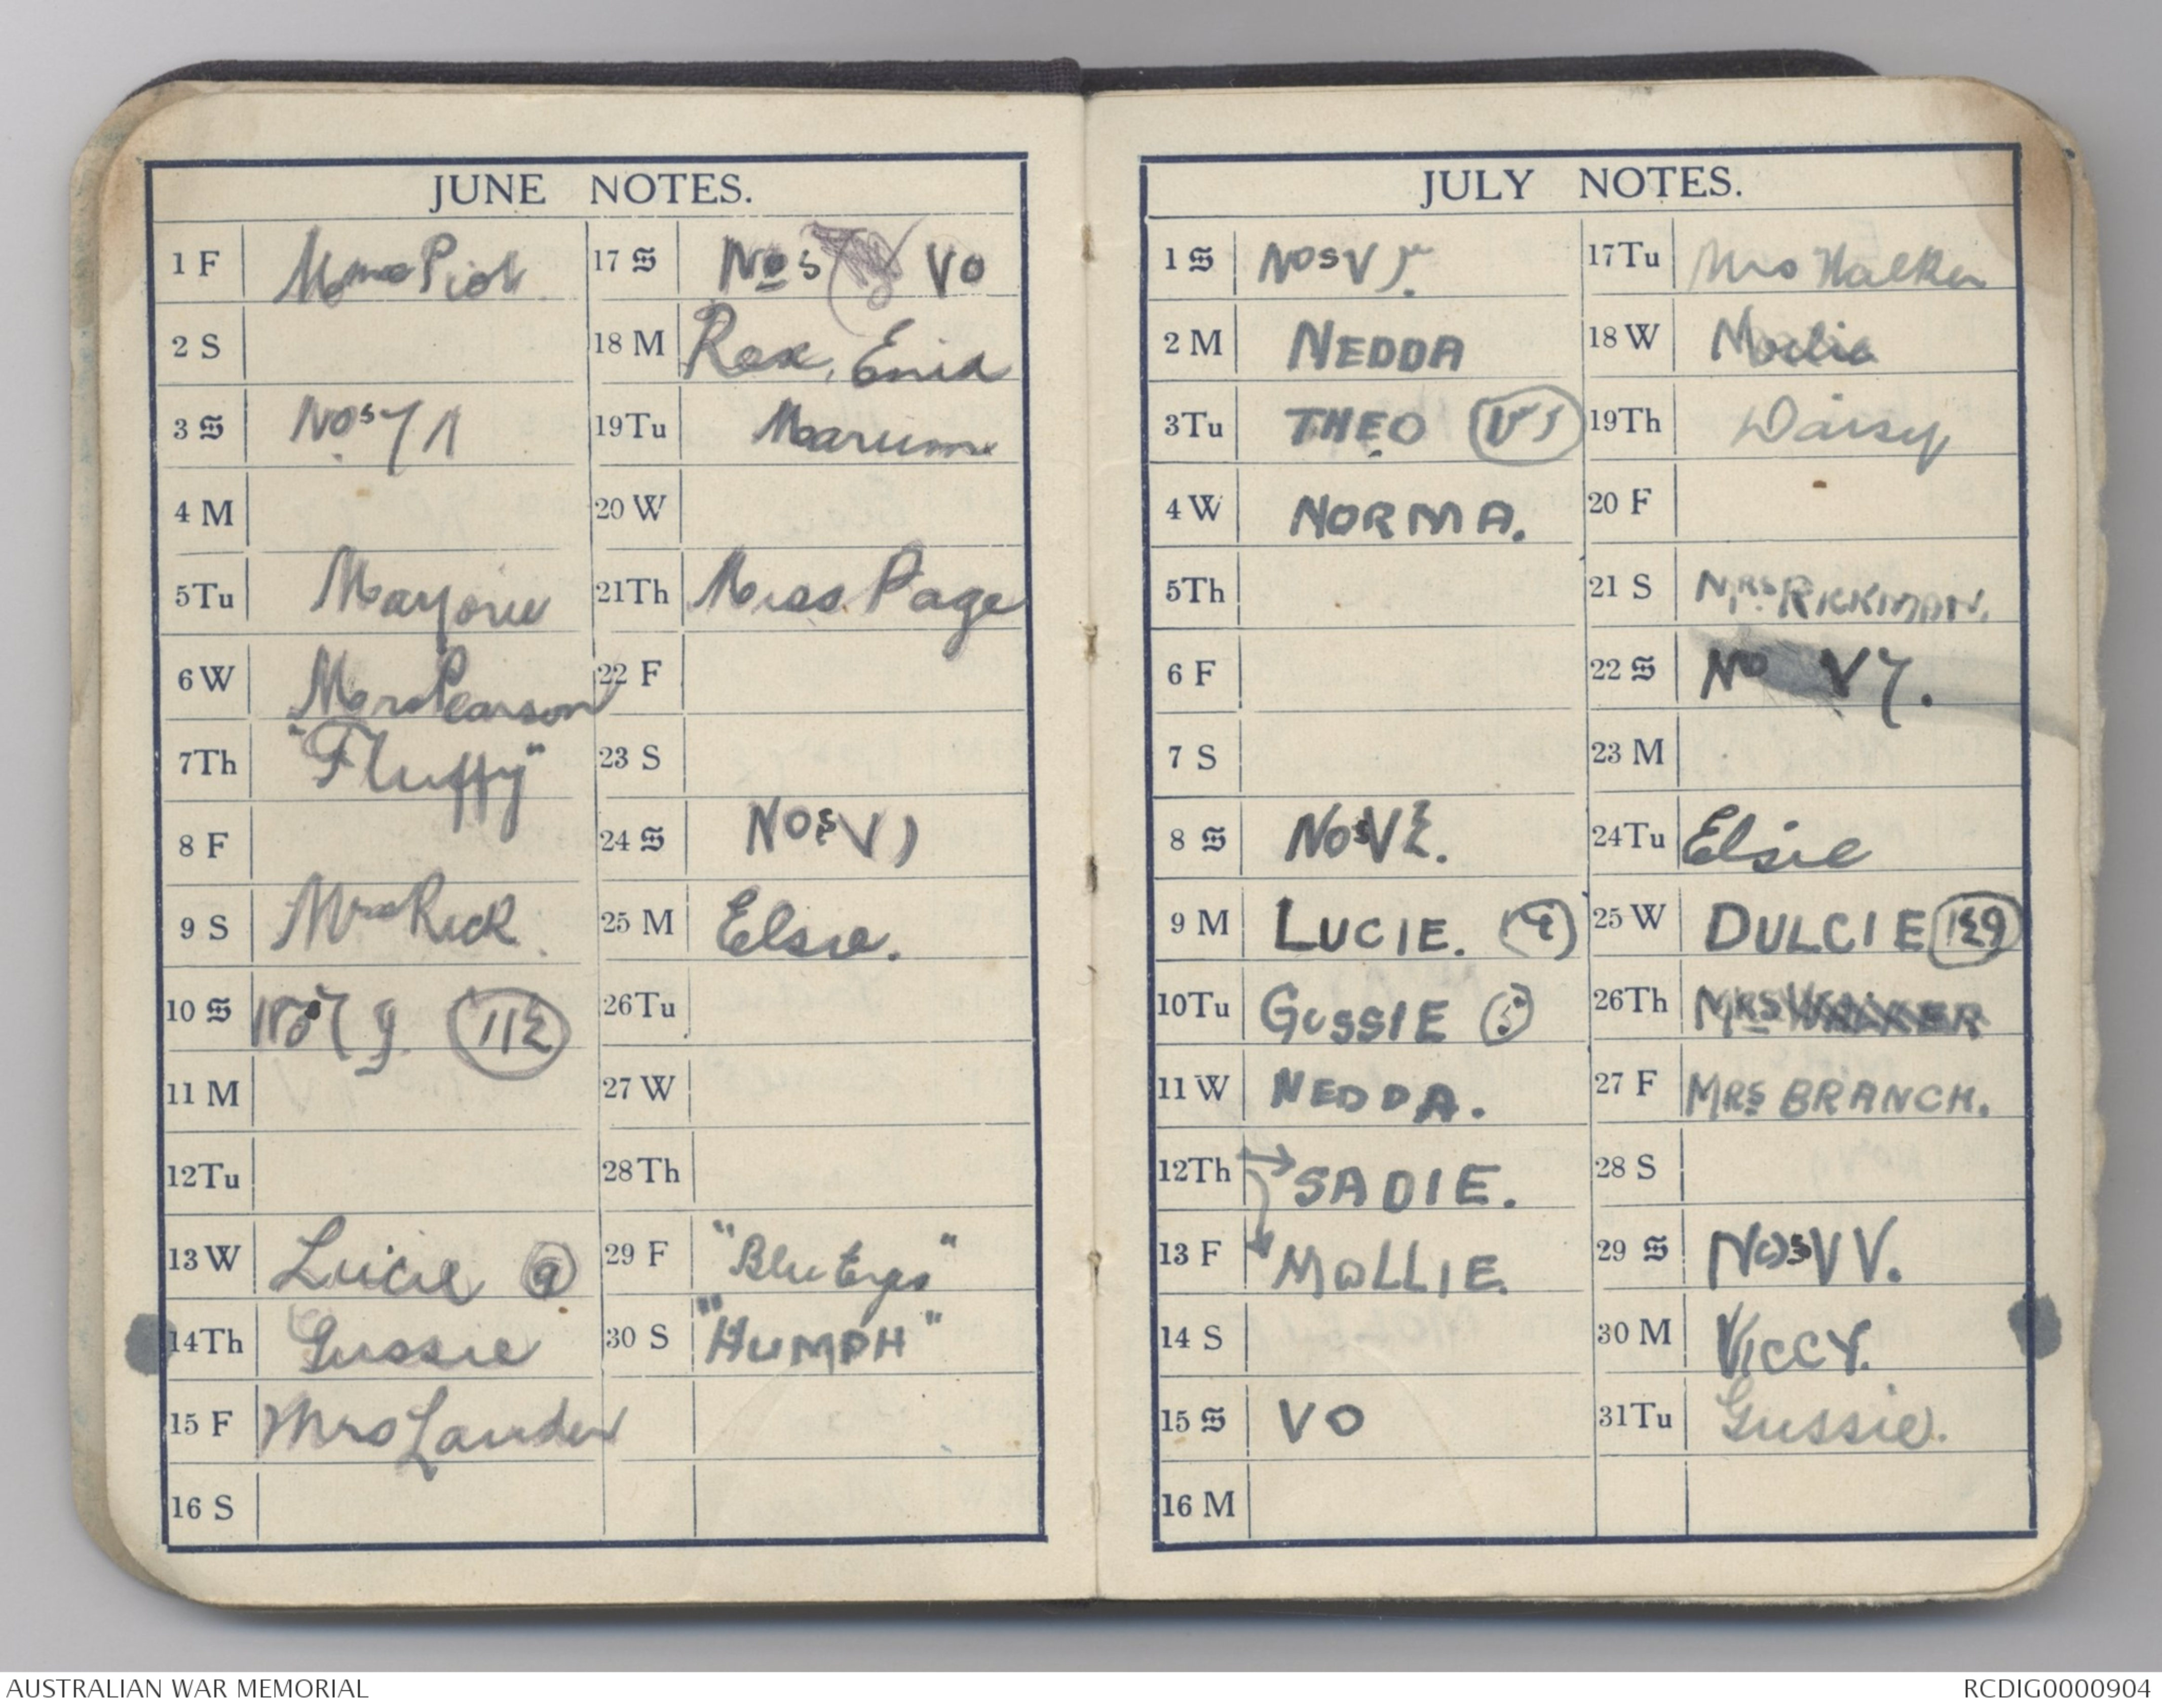 JUNE NOTES.
1 F
2 S
3 S Nos
4 M
5 Tu Marjorie
6 W Mrs Pearson
7 Th "Fluffy"
8 F
9 S Mrs Rick
10 S
11 M
12 Tu
13 W Lucie
14 Th Gussie
15 F Mrs
16 S
17 S Nos
18 M Rex, Enid
19 Tu
20 W
21 Th Miss Page
22 F
23 S
24 S Nos
25 M Elsie.
26 Tu
27 W
28 Th
29 F "Blue Eyes"
30 S "HUMPH"
JULY NOTES.
1 S Nos
2 M NEDDA
3 Tu THEO
4 W NORMA.
5 Th
6 F
7 S
8 S Nos
9 M LUCIE.
10 Tu GUSSIE
11 W NEDDA.
12 Th SADIE.
13 F MOLLIE.
14 S
15 S VO
16 M
17 Tu Mrs Walker
18 W
19 Th Daisy
20 F
21 S MRS RICKMAN.
22 S No
23 M
24 Tu Elsie
25 W DULCIE
26 Th MRS WALKER
27 F MRS BRANCH.
28 S
29 S Nos VV.
30 M VICCY.
31 Tu Gussie.
AUSTRALIAN WAR MEMORIAL
RCDIG0000904